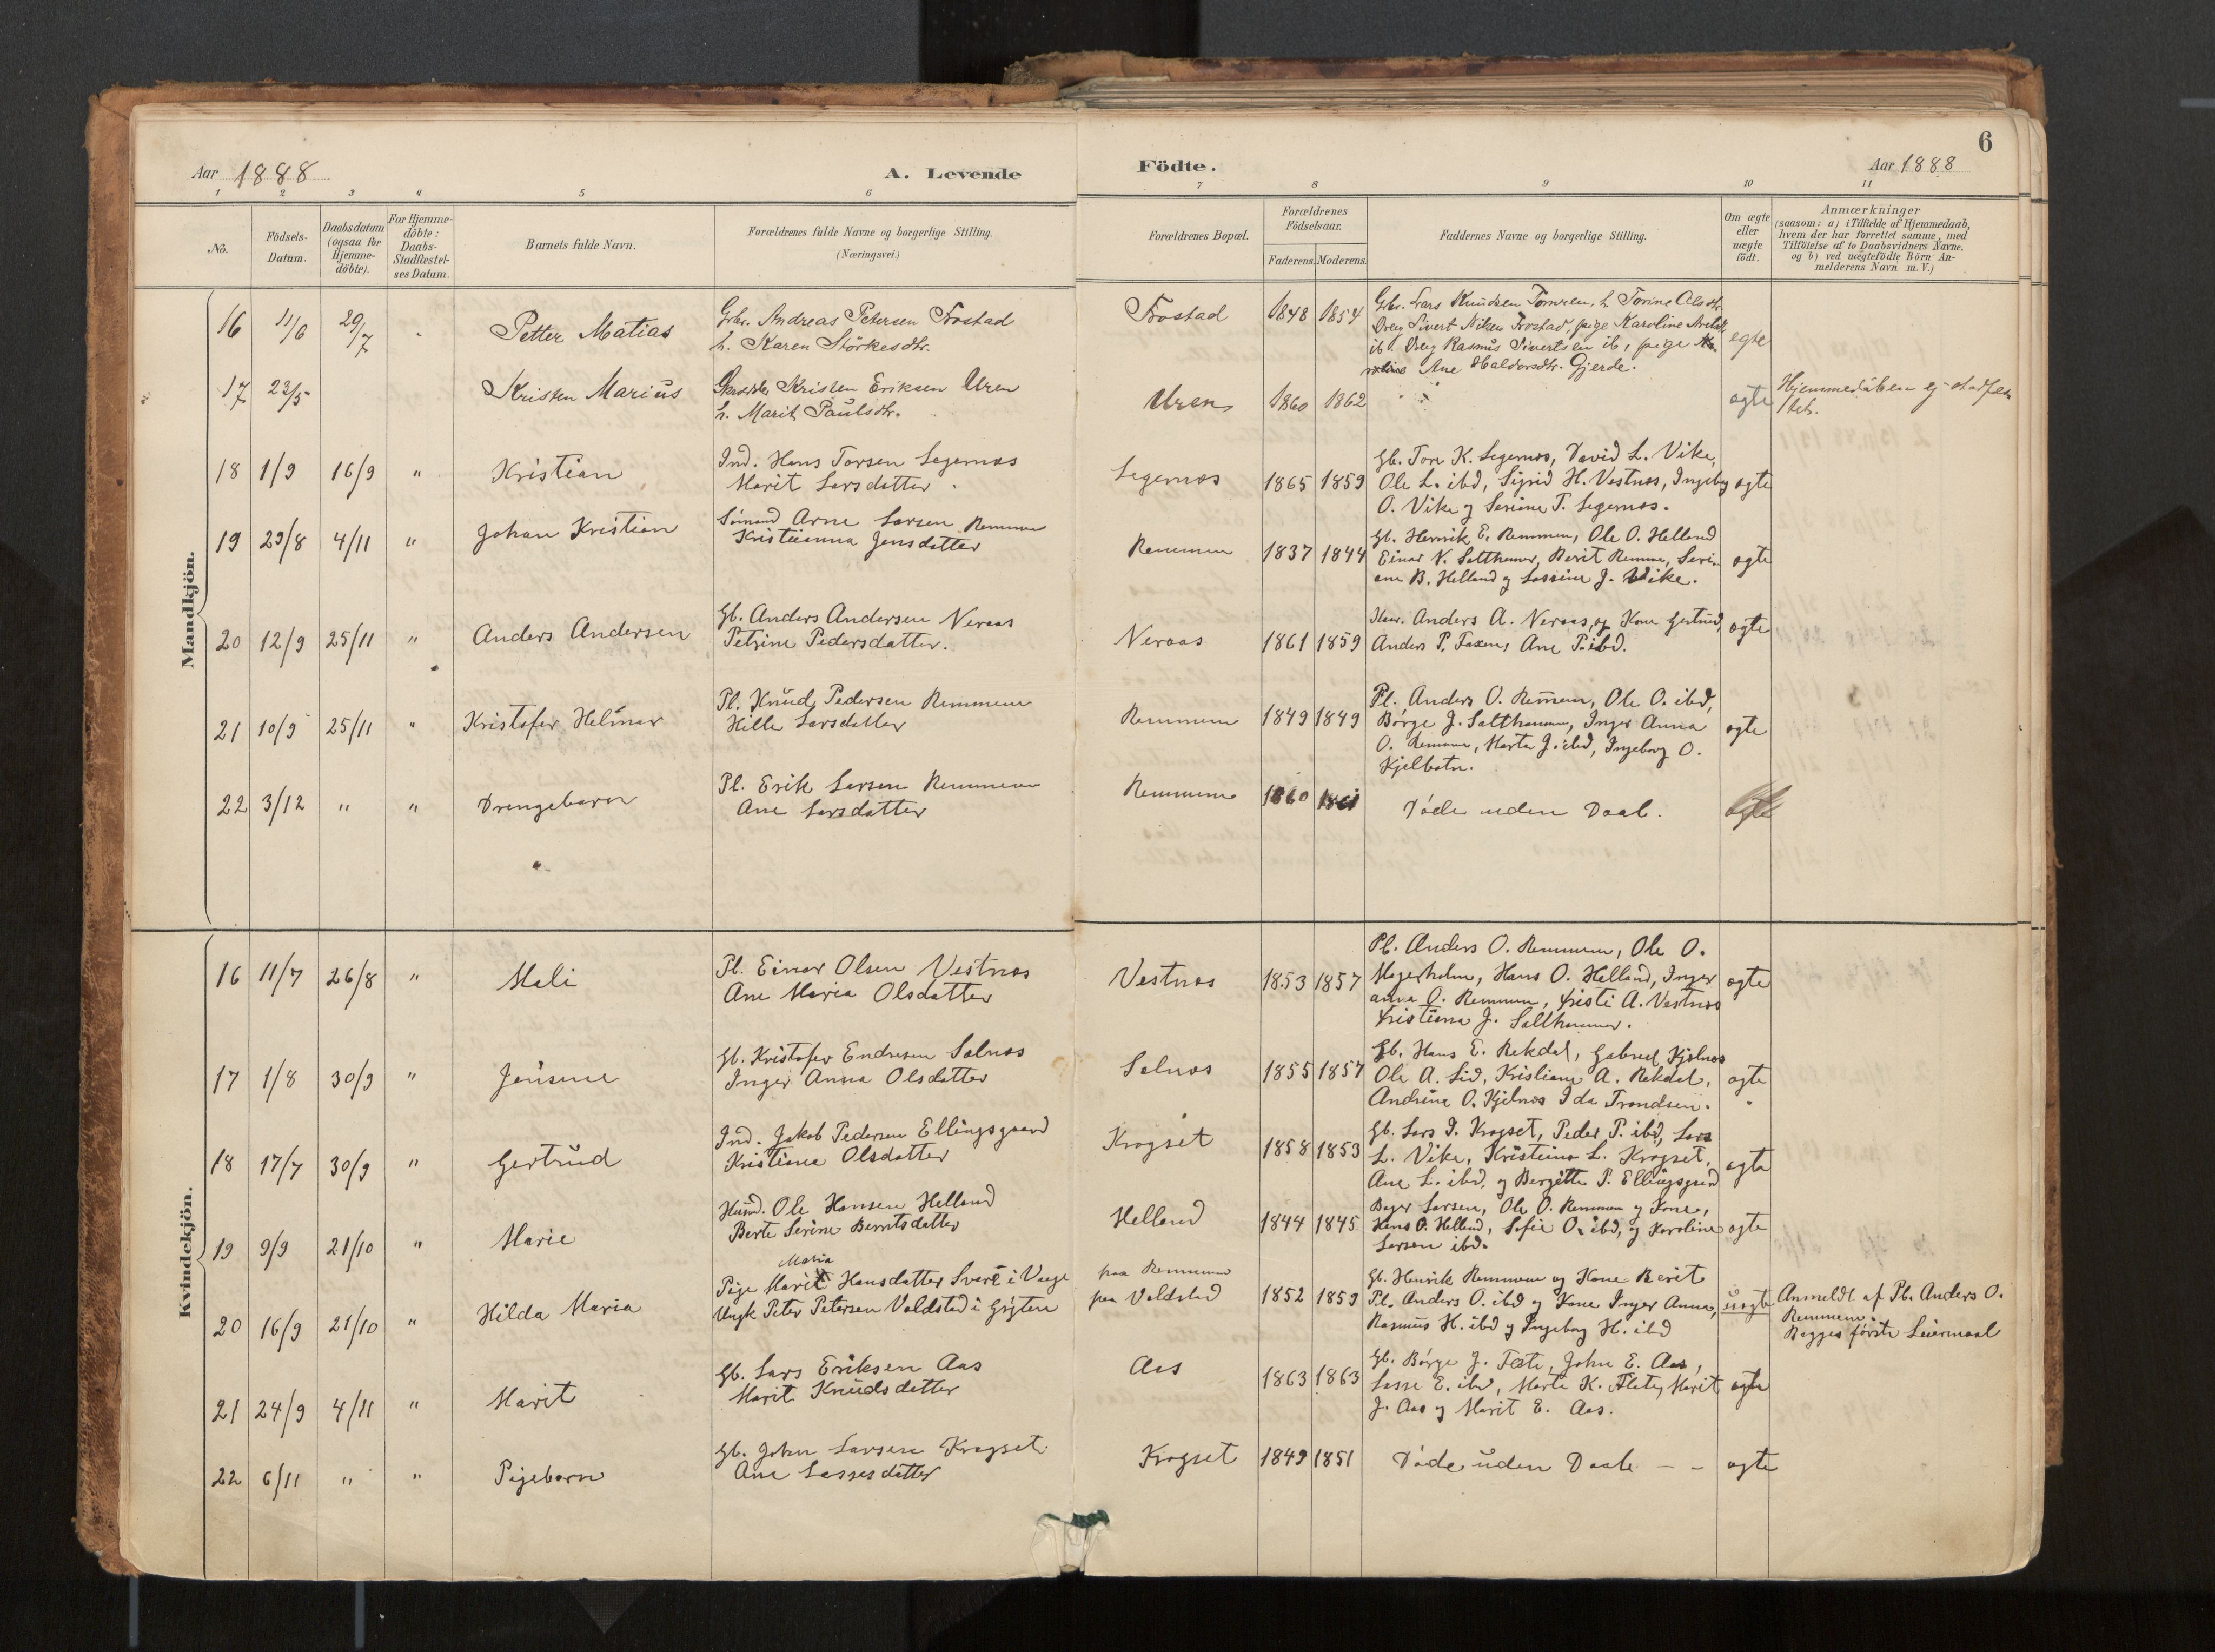 6
Aar 1888
A. Levende
Födte.
Aar 1888
1 2 3 4 5 6 7 8 9 10 11
No.
Födsels-
Datum.
Daabsdatum
(ogsaa for
Hjemme-
döbte).
For Hjemme-
döbte:
Daabs-
Stadfæstel-
ses Datum.
Barnets fulde Navn.
Forældrenes fulde Navne og borgerlige Stilling.
(Næringsvei.)
Forældrenes Bopæl.
Forældrenes
Födselsaar.
Faderens. Moderens.
Faddernes Navne og borgerlige Stilling.
Om ægte
eller
uægte
födt.
Anmærkninger
(saasom: a) i Tilfælde af Hjemmedaab,
hvem der har forrettet samme, med
Tilföielse af to Daabsvidners Navne.
og b) ved uægtefödte Börn An-
melderens Navn m. V.)
Mandkjön.
16 11/6 29/7 Petter Matias
Gbr. Andreas Petersen Frostad
h. Karen Störkesdtr.
Frostad 1848 1854
Gbr. Lars Knudsen h. Torine Olsdtr.
Dreng Sivert Frostad, pige Karoline
ib. Dreng Rasmus Sivertsen ib, pige
Ane Haldorsdtr. Gjerde.
egte
17 23/5 Kristen Marius
Kristen Eriksen Uren
h. Marit Paulsdtr.
Uren 1860 1862
ægte
Hjemmedåben ej stadfes
tet.
18 1/9 16/9 " Kristian
Ind. Hans Torsen Legernæs
Marit Larsdatter
Legernæs 1865 1859
Gb. Tore K. Legernæs, David L. Vike,
Ole L. ibd, Sigrid H. Vestnæs, Ingebg
O. Vike og T. Legernæs.
ægte
19 29/8 4/11 " Johan Kristian
Arne Larsen Remmen
Kristianna Jensdatter
Remmen 1837 1844
Gb. Henrik E. Remmen, Ole O. Helland
Einar V. Salthammer, Berit Remme, Seri-
ane B. Helland og J. Vike.
ægte
20 12/9 25/11 " Anders Andersen
Gb. Anders Andersen Neraas
Petrine Pedersdatter.
Neraas 1861 1859
Anders A. Neraas, og Kone Gertrud,
Anders P. Ane P. ibd.
ægte
21 10/9 25/11 " Kristofer Helmer
Pl. Knud Pedersen Remmem
Hille Larsdatter
Remmem 1849 1849
Pl. Anders O. Remem, Ole O. ibd,
Börge J. Salthammer, Inger Anna
O. Remmem, Marta J. ibd, Ingeborg O.
Kjelbotn.
ægte
22 3/12 " " Drengebarn
Pl. Erik Larsen Remmem
Ane Larsdatter
Remmem 1860 1861
Döde uden Daab.
ægte
Kvindekjön.
16 11/7 26/8 " Mali
Pl. Einar Olsen Vestnæs
Ane Maria Olsdatter
Vestnæs 1853 1857
Pl. Anders O. Remmem, Ole O.
Magerholm, Hans O. Helland, Inger
anna O. Remmem, Kristi A. Vestnæs
Kristiana J. Salthammer.
ægte
17 1/8 30/9 " Jensine
Gb. Kristofer Endresen Salnæs
Inger Anna Olsdatter
Salnæs 1855 1857
Gb. Hans E. Rekdal, Gabriel Kjelnæs
Ole A. Lid, Kristiane A. Rekdal,
Andrine O. Kjelnæs Ida Trondsen.
ægte
18 17/7 30/9 " Gertrud
Ind. Jakob Pedersen Ellingsgaard
Kristiana Olsdatter
Krogset 1858 1853
Gb. Lars I. Krogset, Peder P. ibd, Lars
L. Vike, Kristina L. Krogset,
Ane L. ibd, og Bergitte P. Ellingsgaard
ægta
19 9/9 21/10 " Marie
Husmd. Ole Hansen Helland
Berte Serine Berntsdatter
Helland 1844 1845
Larsen, Ole O. Remmem og Kone,
Hans O. Helland, Sofie O. ibd, og Karoline
Larsen ibd.
ægte
20 16/9 21/10 " Hilda Maria
Maria
Pige Marit Hansdatter i Vaage
Ungk Peter Petersen Valdsted i Grÿten
paa Remmem
paa Valdsted
1852 1859
Gb. Henrik Remmem og Kone Berit
Pl. Anders O. ibd og Kone Inger Anna,
Rasmus H. ibd og Ingeborg H. ibd
uægte
Anmeldt af Pl. Anders O.
Remmem.
Begges förste Leiermaal
21 24/9 4/11 " Marit
Gb. Lars Eriksen Aas
Marit Knudsdatter
Aas 1863 1863
Gb. Börge J. John E. Aas,
Lasse E. ibd, Marte K. Marit
J. Aas og Marit E. Aas.
ægte
22 6/11 " " Pigebarn
Gb. John Larsen Krogset
Ane Lassesdatter
Krogset 1849 1851
Döde uden Daab - -
ægte